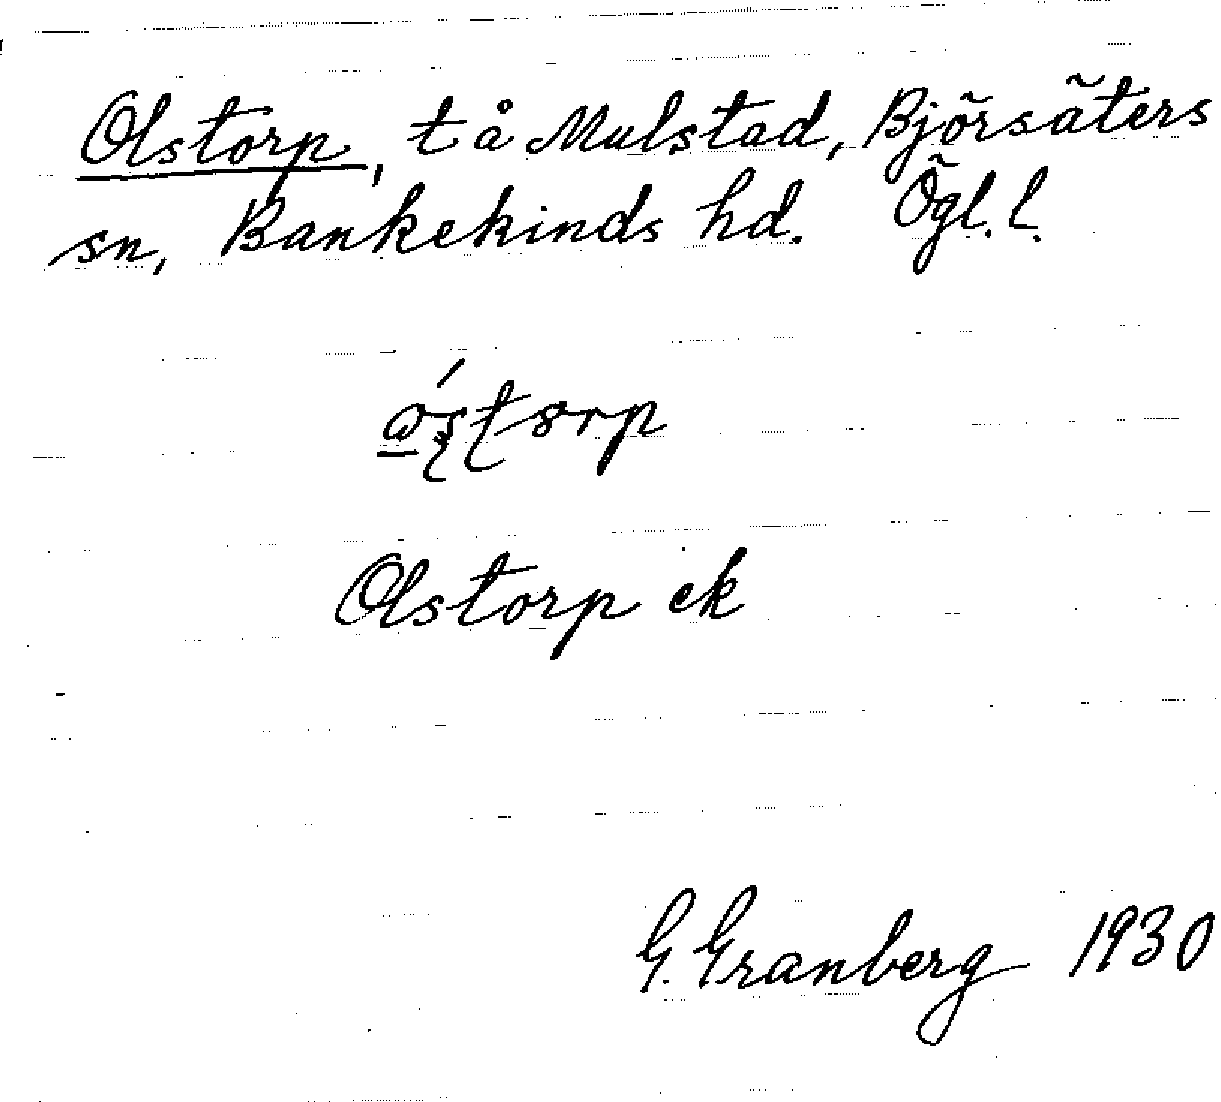 Olstorp, t å Mulstad, Björsäters
sn, Bankekinds hd. Ögl. l.
Olstorp ek
G. Granberg 1930